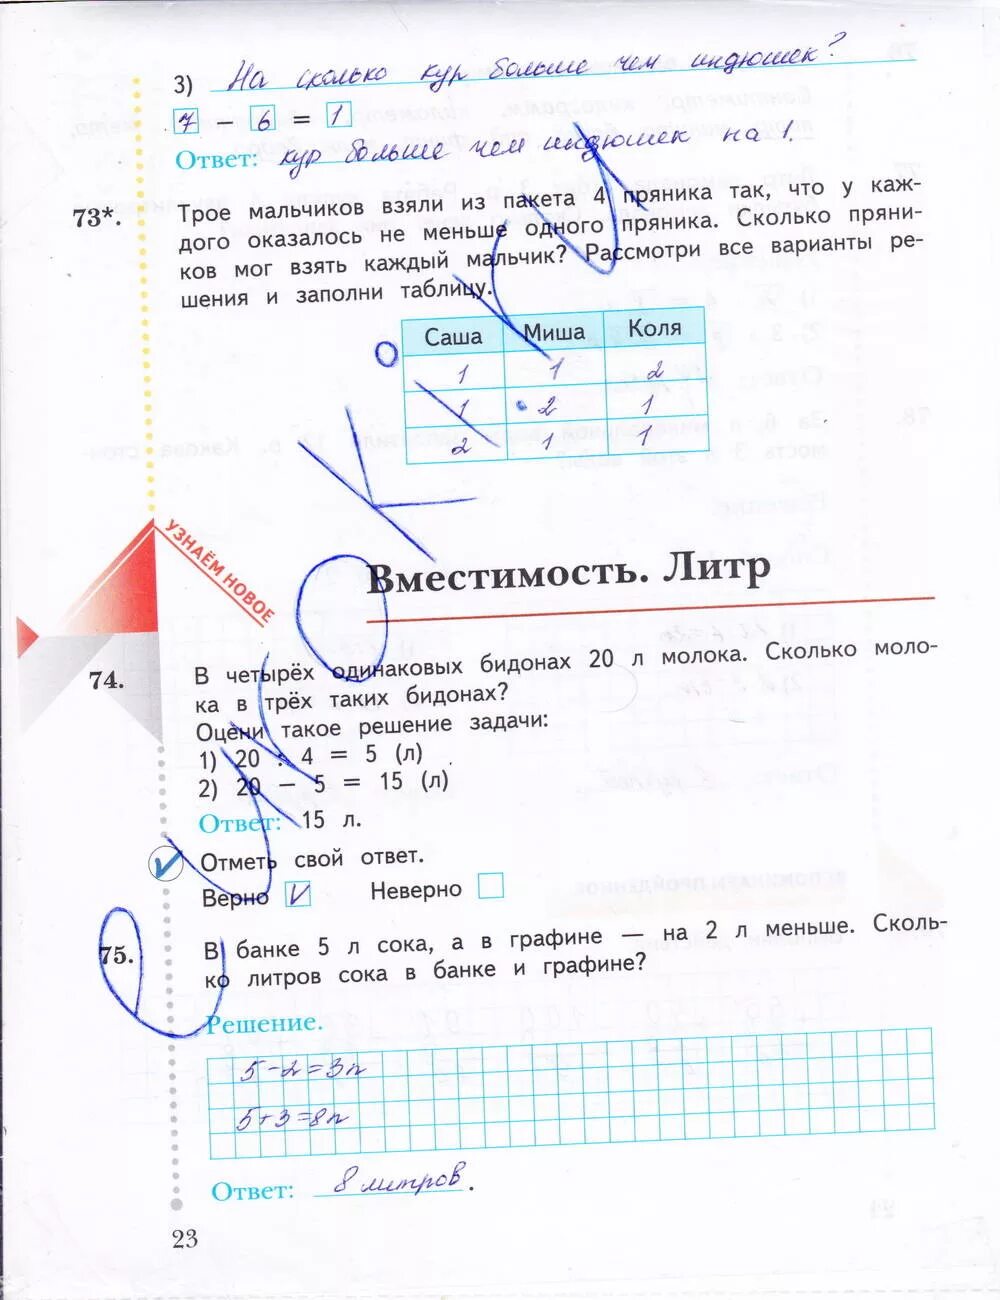 3) На сколько кур больше чем индюшек?
7 6 = 1
Ответ: кур больше чем индюшек на 1.
73*. Трое мальчиков взяли из пакета 4 пряника так, что у каж-
дого оказалось не меньше одного пряника. Сколько пряни-
ков мог взять каждый мальчик? Рассмотри все варианты ре-
шения и заполни таблицу.
Саша Миша Коля
1 1 2
1 2 1
2 1 1
УЗНАЁМ НОВОЕ
Вместимость. Литр
74. В четырёх одинаковых бидонах 20 л молока. Сколько моло-
ка в трёх таких бидонах?
Оцени такое решение задачи:
1) 20 : 4 = 5 (л)
2) 20 − 5 = 15 (л)
Ответ: 15 л.
Отметь свой ответ.
Верно V Неверно
75. В банке 5 л сока, а в графине — на 2 л меньше. Сколь-
ко литров сока в банке и графине?
Решение.
5-2=3л
5+3=8л
Ответ: 8 литров.
23